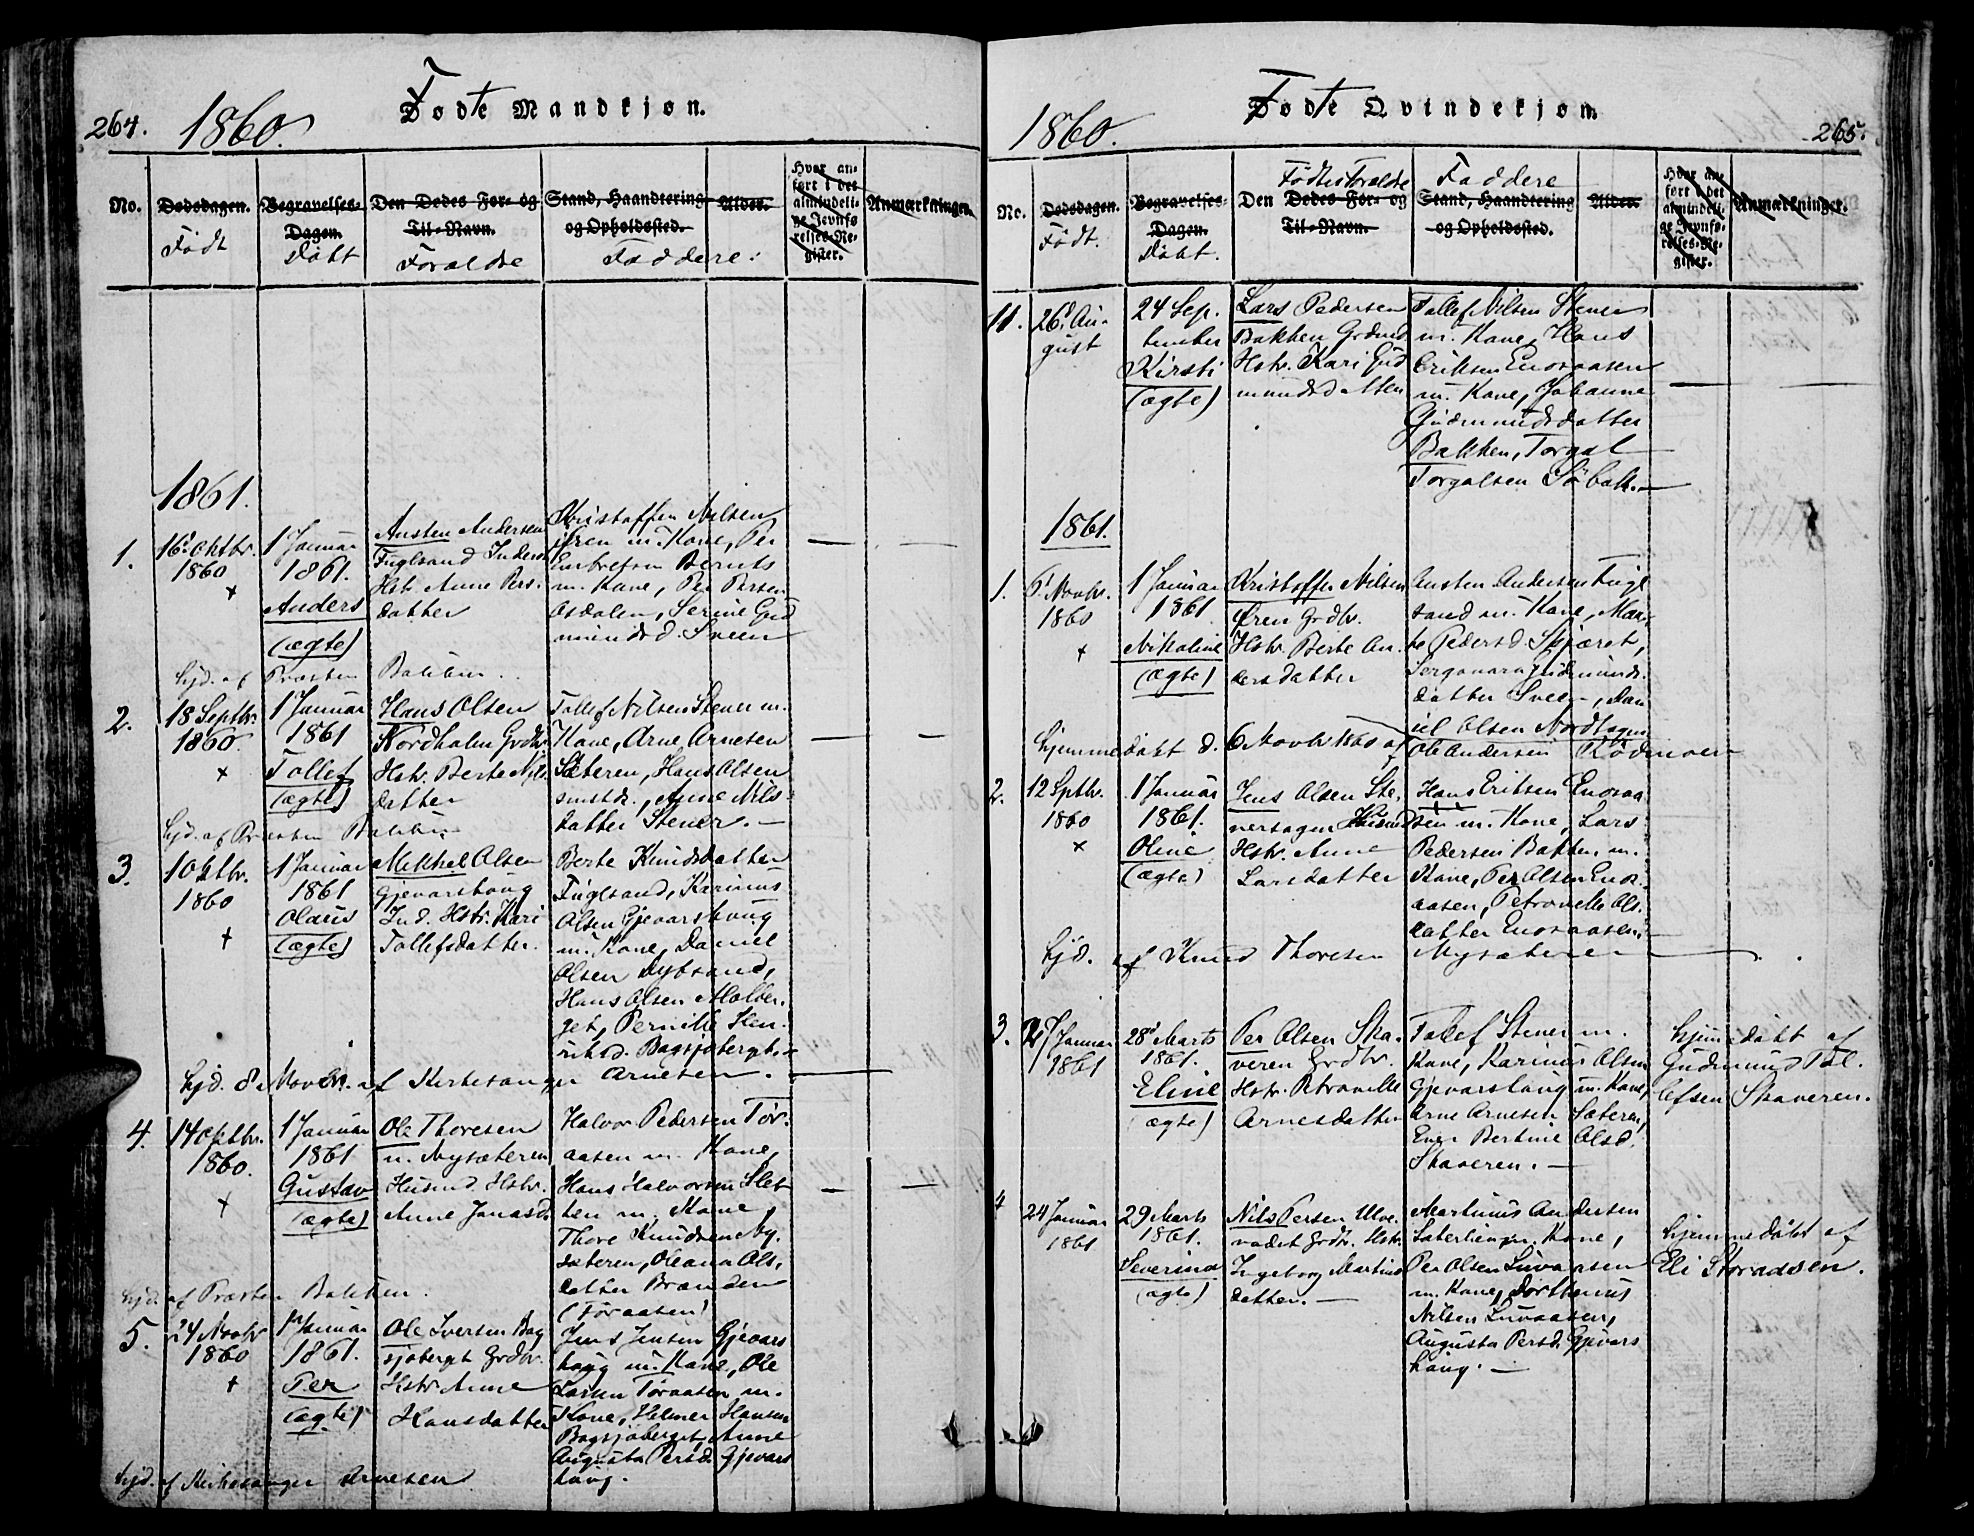 264.
1860.
Fødte Mandkjøn.
No.
Dødsdagen.
Født
Begravelses-
Dagen.
Døbt
Den Dødes For- og
Til-Navn.
Forældre
Stand, Haandtering
og Opholdssted.
Faddere:
Alder.
Hvor an-
ført i det
almindeli-
ge Jevnfø-
relses-Re-
gister.
Anmærkninger.
1861.
1.
16. Oktbr.
1860
+
1 Januar
1861.
Anders
(ægte)
Austen Andersen
Fuglsand Inderst
Hstr. Anne Pers.
datter
Kristoffer Nilsen
Øren m. Kone, Per
Embretsen Bernts
m. Kone, Per Persen
Asdalen, Serine Gud
mundsd. Sveen
hjd. af Præsten Bakken.
2.
18 Septbr.
1860.
+
1 Januar
1861
Tollef
(ægte)
Hans Olsen
Nordhalen Grdbr.
Hstr. Berte Nils
datter
Tollef Nilsen Stener m.
Kone, Arne Arnesen
Sæteren, Hans Olsen
Anne Nils-
datter Stener.
hjd. af Præsten Bakken
3.
1 Oktbr.
1860
+
1 Januar
1861
Olaus
(ægte)
Mikkel Olsen
Gjevarshoug
Ind. Hstr. Kari
Tollefsdatter.
Berte Knudsdatter
Fuglsand, Karinus
Olsen Gjevarshoug
m. Kone, Daniel
Olsen Nytrøend,
Hans Olsen Molber.
get, Pernille Hen-
riksd. Bagsjøberget.
hjd. 8 Novbr. af Kirkesanger Arnesen.
4.
14 Oktbr.
1860.
+
1 Januar
1861
Gustav
(ægte)
Ole Thoresen
n. Nysæteren
Husmd. Hstr.
Anne Jonasd.
Halvor Pedersen Tør.
aasen m. Kone,
Hans Halvorsen Slet
ten m. Kone,
Thore Knudsen Ny.
sæteren, Oleana Ols.
datter Brænden
(Tøraasen)
hjd. af Præsten Bakken.
5.
24 Novbr
1860
+
1 Januar
1861.
Per
(ægte)
Ole Iversen Bag
sjøberget Grdbr.
Hstr Anne
Hansdatter
Jens Jensen Gjevars
houg m. Kone, Ole
Larsen Tøraasen m.
Kone, Helmer Hansen
Bagsjøberget, Anne
Augusta Persd. Gjevars
houg.
hjd. af Kirkesanger Arnesen
1860.
Fødte Qvindekjøn.
265.
No.
Dødsdagen.
Født.
Begravelses-
Dagen.
Døbt.
Fødtes Forældre
Den Dødes For- og
Til-Navn.
Faddere
Stand, Haandtering
og Opholdssted.
Alder.
Hvor an-
ført i det
almindeli-
ge Jevnfø-
relses-Re-
gister.
Anmærkninger.
11.
26. Au-
gust
24 Sep.
tember
Kirsti
(ægte)
Lars Pedersen
Bakken Grdmd
Hstr. Kari Gud
mundsdatter
Tollef Nilsen Stener
m. Kone, Hans
Eriksen Enosaasen
m. Kone, Johanne
Gudmundsdatter
Bakken, Torgal
Torgalsen Søbak.
1861.
1.
6. Novbr.
1860
+
1 Januar
1861
Nikoline
(ægte)
Kristoffer Nilsen
Øren Grdbr.
Hstr. Berte An.
dersdatter
Austen Andersen Fugl
sand m. Kone, Mar-
te Pedersd. Skjæret,
Gudmunds.
datter Sveen, Dan
iel Olsen Nordhagen
hjemmedøbt d. 6 Novbr 1860 af Ole Andersen Rødmoen
2.
12 Sptbr.
1860
+
1 Januar
1861.
Oline
(ægte)
Jens Olsen Ste.
nerhagen Husmd
Hstr. Anne
Larsdatter
Hans Eriksen Enosaa
sen m. Kone, Lars
Pedersen Bakken m.
Kone, Per Olsen Enos.
aasen, Petronelle Ols.
datter Enosaasen.
hjd. af Knud Thoresen Nysæteren
3.
27 Januar
1861
28. Marts
1861.
Eline
(ægte)
Per Olsen Ska.
veren Grdbr.
Hstr. Petronelle
Arnesdatter
Tollef Stener m.
Kone, Karinus Olsen
Gjevarshoug m. Kone,
Arne Arnesen Sæteren,
Enn Bertine Olsd.
Skaveren.
hjemmedøbt af
Gudmund Tol.
lefsen Skaveren.
4
24 Januar
1861
29 Marts
1861.
Severine
(ægte)
Nils Persen Ulve.
vadet Grdbr. Hstr.
Ingeborg Martins
datter.
Martinus Andersen
m. Kone,
Per Olsen Luvaasen
m. Kone, Dorthenus
Nilsen Luvaasen,
Augusta Persd. Gjevars
houg.
hjemmedøbt af
Eli Storaasen.